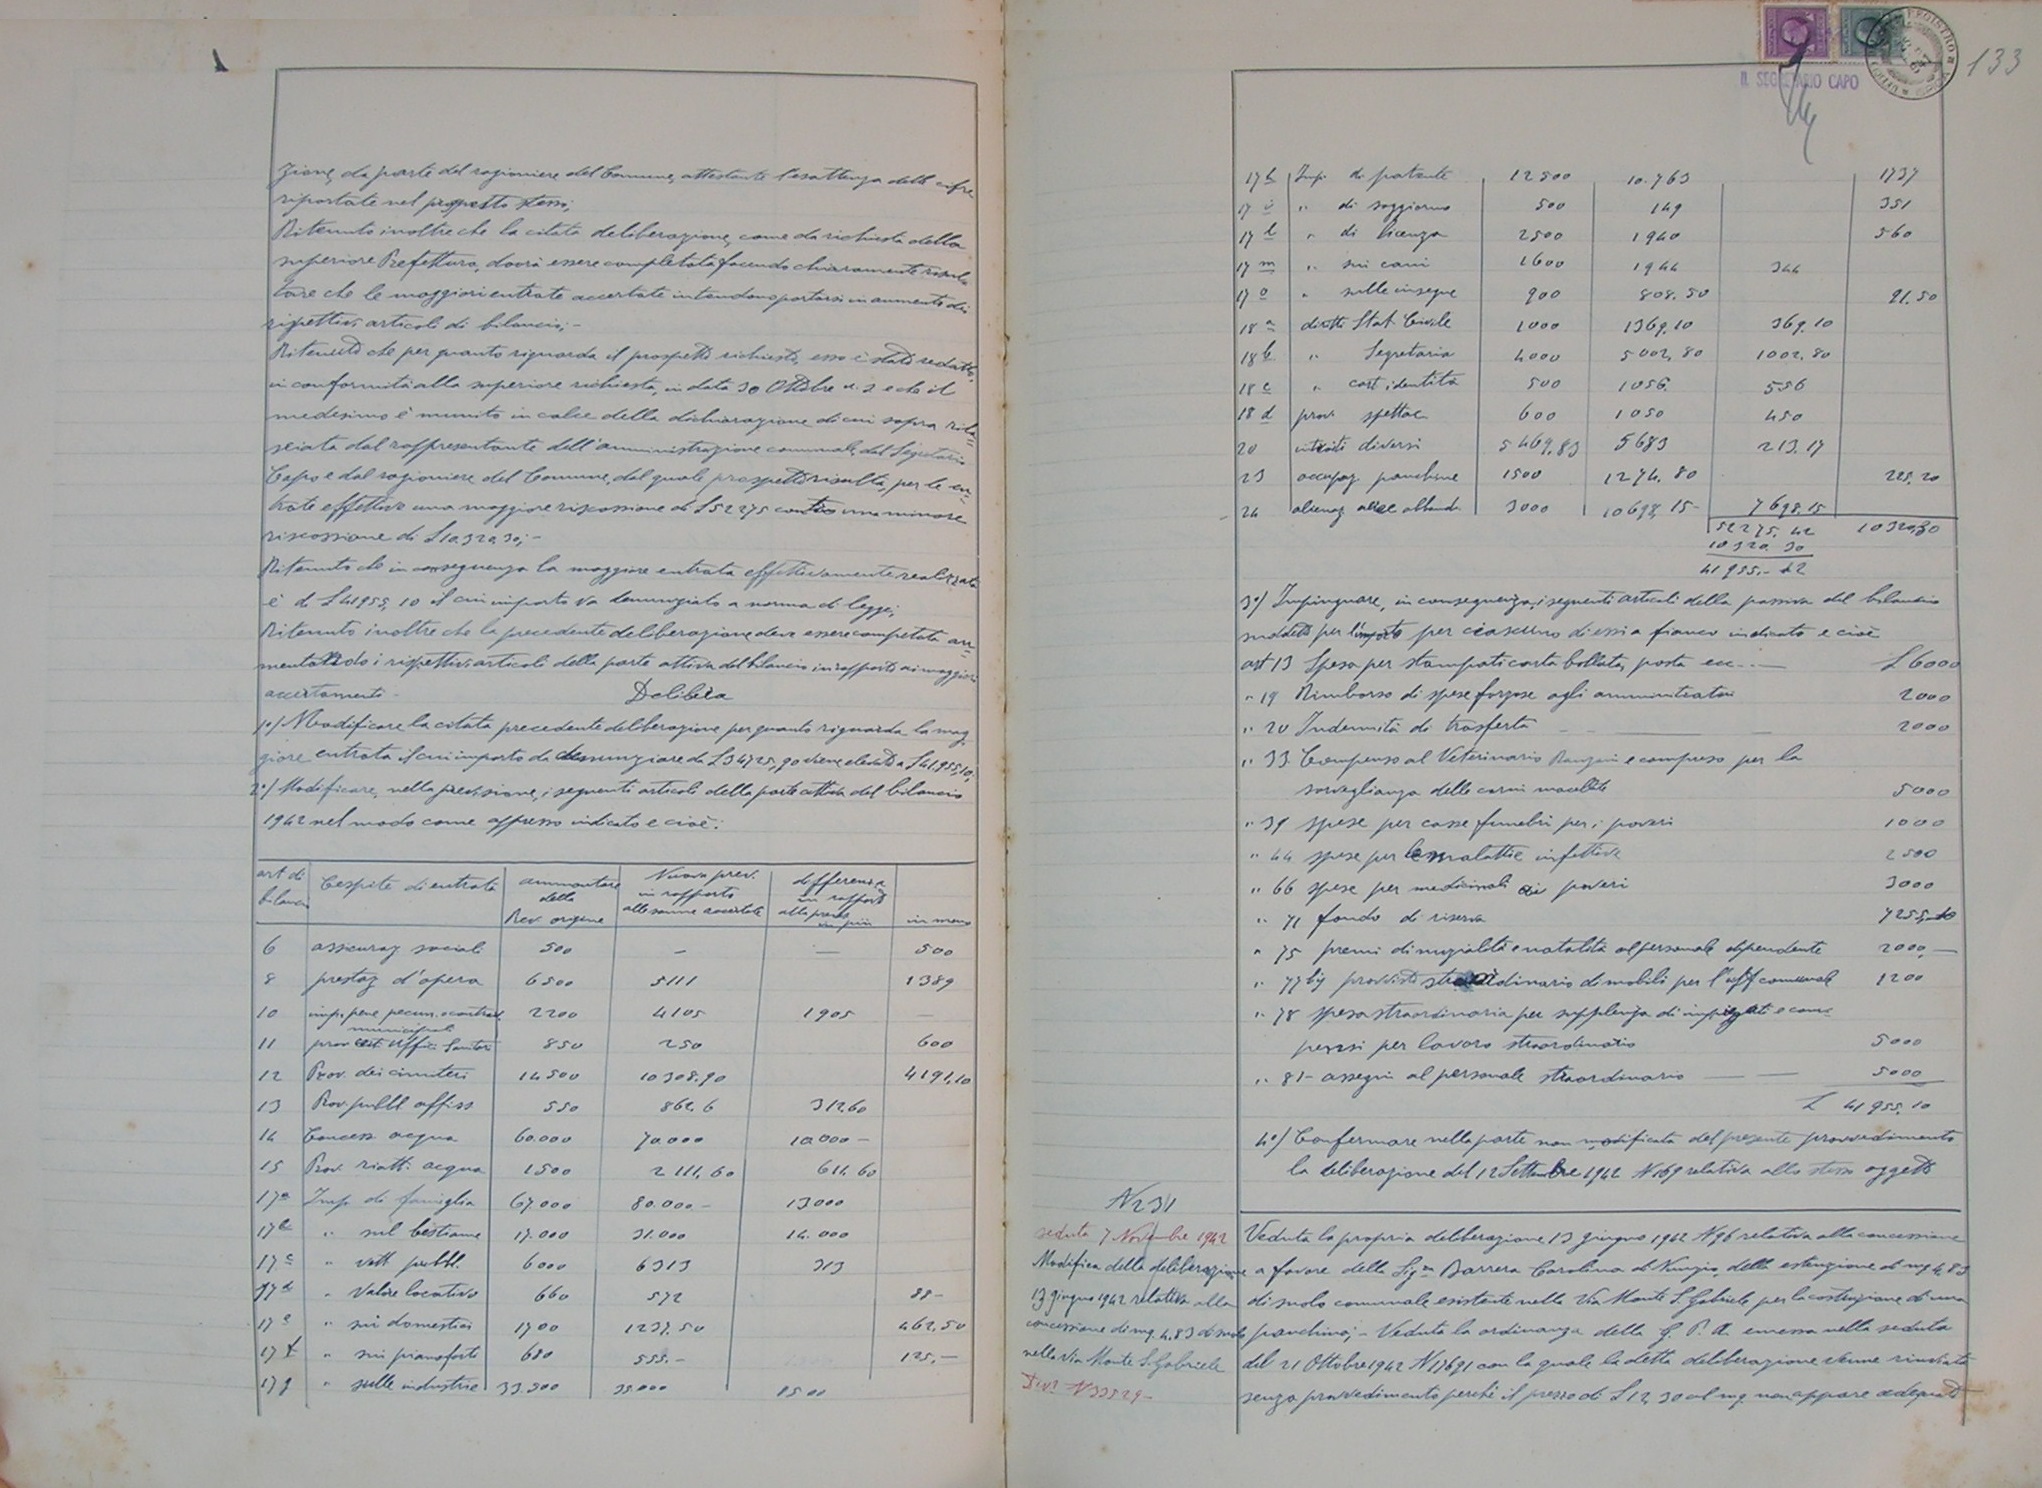 zione, da parte del ragioniere del Comune, attestante l'esattezza delle cifre
riportate nel prospetto stesso;
Ritenuto inoltre che la citata deliberazione, come da richiesta della
superiore Prefettura, dovrà essere completata facendo chiaramente risul
tare che le maggiori entrate accertate intendono portarsi in aumento dei
rispettivi articoli di bilancio;-
Ritenuto che per quanto riguarda il prospetto richiesto, esso è stato redatto,
in conformità alla superiore richiesta, in data 30 Ottobre u. s. e che il
medesimo è munito in calce della dichiarazione di cui sopra rila=
sciata dal rappresentante dell'amministrazione comunale, dal Segretario
Capo e dal ragioniere del Comune, dal quale prospetto risulta, per le en-
trate effettive una maggiore riscossione di £ 52275 contro una minore
riscossione di £ 10.320,30;-
Ritenuto che in conseguenza la maggiore entrata effettivamente realizzata
è di £ 41955,10 il cui importo va denunziato a norma di legge;
Ritenuto inoltre che la precedente deliberazione deve essere competata au-
mentando i rispettivi articoli della parte attiva del bilancio in rapporto ai maggiori
accertamento - Delibera
1°/ Modificare la citata precedente deliberazione per quanto riguarda la mag
giore entrata il cui importo da denunziare da £ 34725,90 viene elevato a £ 41.955,10;
2°/ Modificare, nella previsione, i seguenti articoli della parte attiva del bilancio
1942 nel modo come appresso indicato e cioè:
art. di bilancio Cespite di entrata ammontare della Prev. origine Nuova prev. in rapporto alle somme accertate differenza in rapporto alla prev. in più in meno
6 assicuraz sociali 500 — — 500
8 prestaz d'opera 6500 5111 1389
10 imp. pene pecun. e contrav. municipali 2200 4105 1905 —
11 prov. Uffici Sanitari 850 250 600
12 Prov. dei cimiteri 14500 10308.90 4191,10
13 Prov. pubbl affiss 550 862.6 312.60
14 Concess acqua 60.000 70.000 10.000 —
15 Prov. riatti acqua 1500 2111,60 611,60
17a Imp. di famiglia 67.000 80.000 - 13000
17b " sul bestiame 17.000 31.000 14.000
17c " vett pubbl. 6000 6313 313
17d " valore locativo 660 572 88 -
17e " sui domestici 1700 1237.50 462,50
17f " sui pianoforti 680 555.- 125.—
17g " sulle industrie 33.500 35.000 1500
IL SEGRETARIO CAPO
133
17h Imp. di patente 12500 10.763 1737
17i " di soggiorno 500 149 351
17l " di licenza 2500 1940 560
17m " sui cani 1600 1944 344
17o " sulle insegne 900 808.50 91.50
18a diritti Stat. Civile 1000 1369.10 369.10
18b " Segretaria 4000 5002,80 1002.80
18c " cart identità 500 1056. 556
18d prov. spettac 600 1050 450
20 introiti diversi 5469,83 5683 213.17
23 occupaz panchine 1500 1274.80 225.20
24 alienaz aree abbando 3000 10698,15- 7698.15
52275.42 10320,30
10320.30
41955.- 12
3°/ Impinguare, in conseguenza, i seguenti articoli della passiva del bilancio
suddetto per l'importo per ciascuno di essi a fianco indicato e cioè
art 13 Spesa per stampati carta bollata, posta ecc. — £ 6000
" 19 Rimborso di spese forzose agli amministratori 2000
" 20 Indennità di trasferta — 2000
" 33 Compenso al Veterinario e compreso per la
sorveglianza delle carni macellate 5000
" 39 spese per casse funebri per i poveri 1000
" 44 spese per le malattie infettive 2500
" 66 spese per medicinali ai poveri 3000
" 71 fondo di riserva 7255,10
" 75 premi di nuzialità e natalità al personale dipendente 2000,—
" 77 bis provvista straordinario di mobili per l'uff comunale 1200
" 78 spesa straordinaria per supplenza di impiegati e com-
pensi per lavoro straordinario 5000
" 81 - assegni al personale straordinario — 5000
£ 41955.10
4°/ Confermare nella parte non modificata del presente provvedimento
la deliberazione del 12 Settembre 1942 N 169 relativa allo stesso oggetto
N 231
seduta 7 Novembre 1942
Modifica della deliberazione
13 giugno 1942 relativa alla
concessione di mq. 4,83 di suolo
nella Via Monte S. Gabriele
Div.2 N 33529-
Veduta la propria deliberazione 13 giugno 1942 N 96 relativa alla concessione
a favore della Sig.ra Barrera Carolina di Nunzio, della estenzione di mq 4,83
di suolo comunale esistente nella Via Monte S. Gabriele per la costruzione di una
panchina; - Veduta la ordinanza della G. P. A. emessa nella seduta
del 21 Ottobre 1942 N 17691 con la quale la detta deliberazione venne rinviata
senza provvedimento perchè il prezzo di £ 12,30 al mq. non appare adeguato